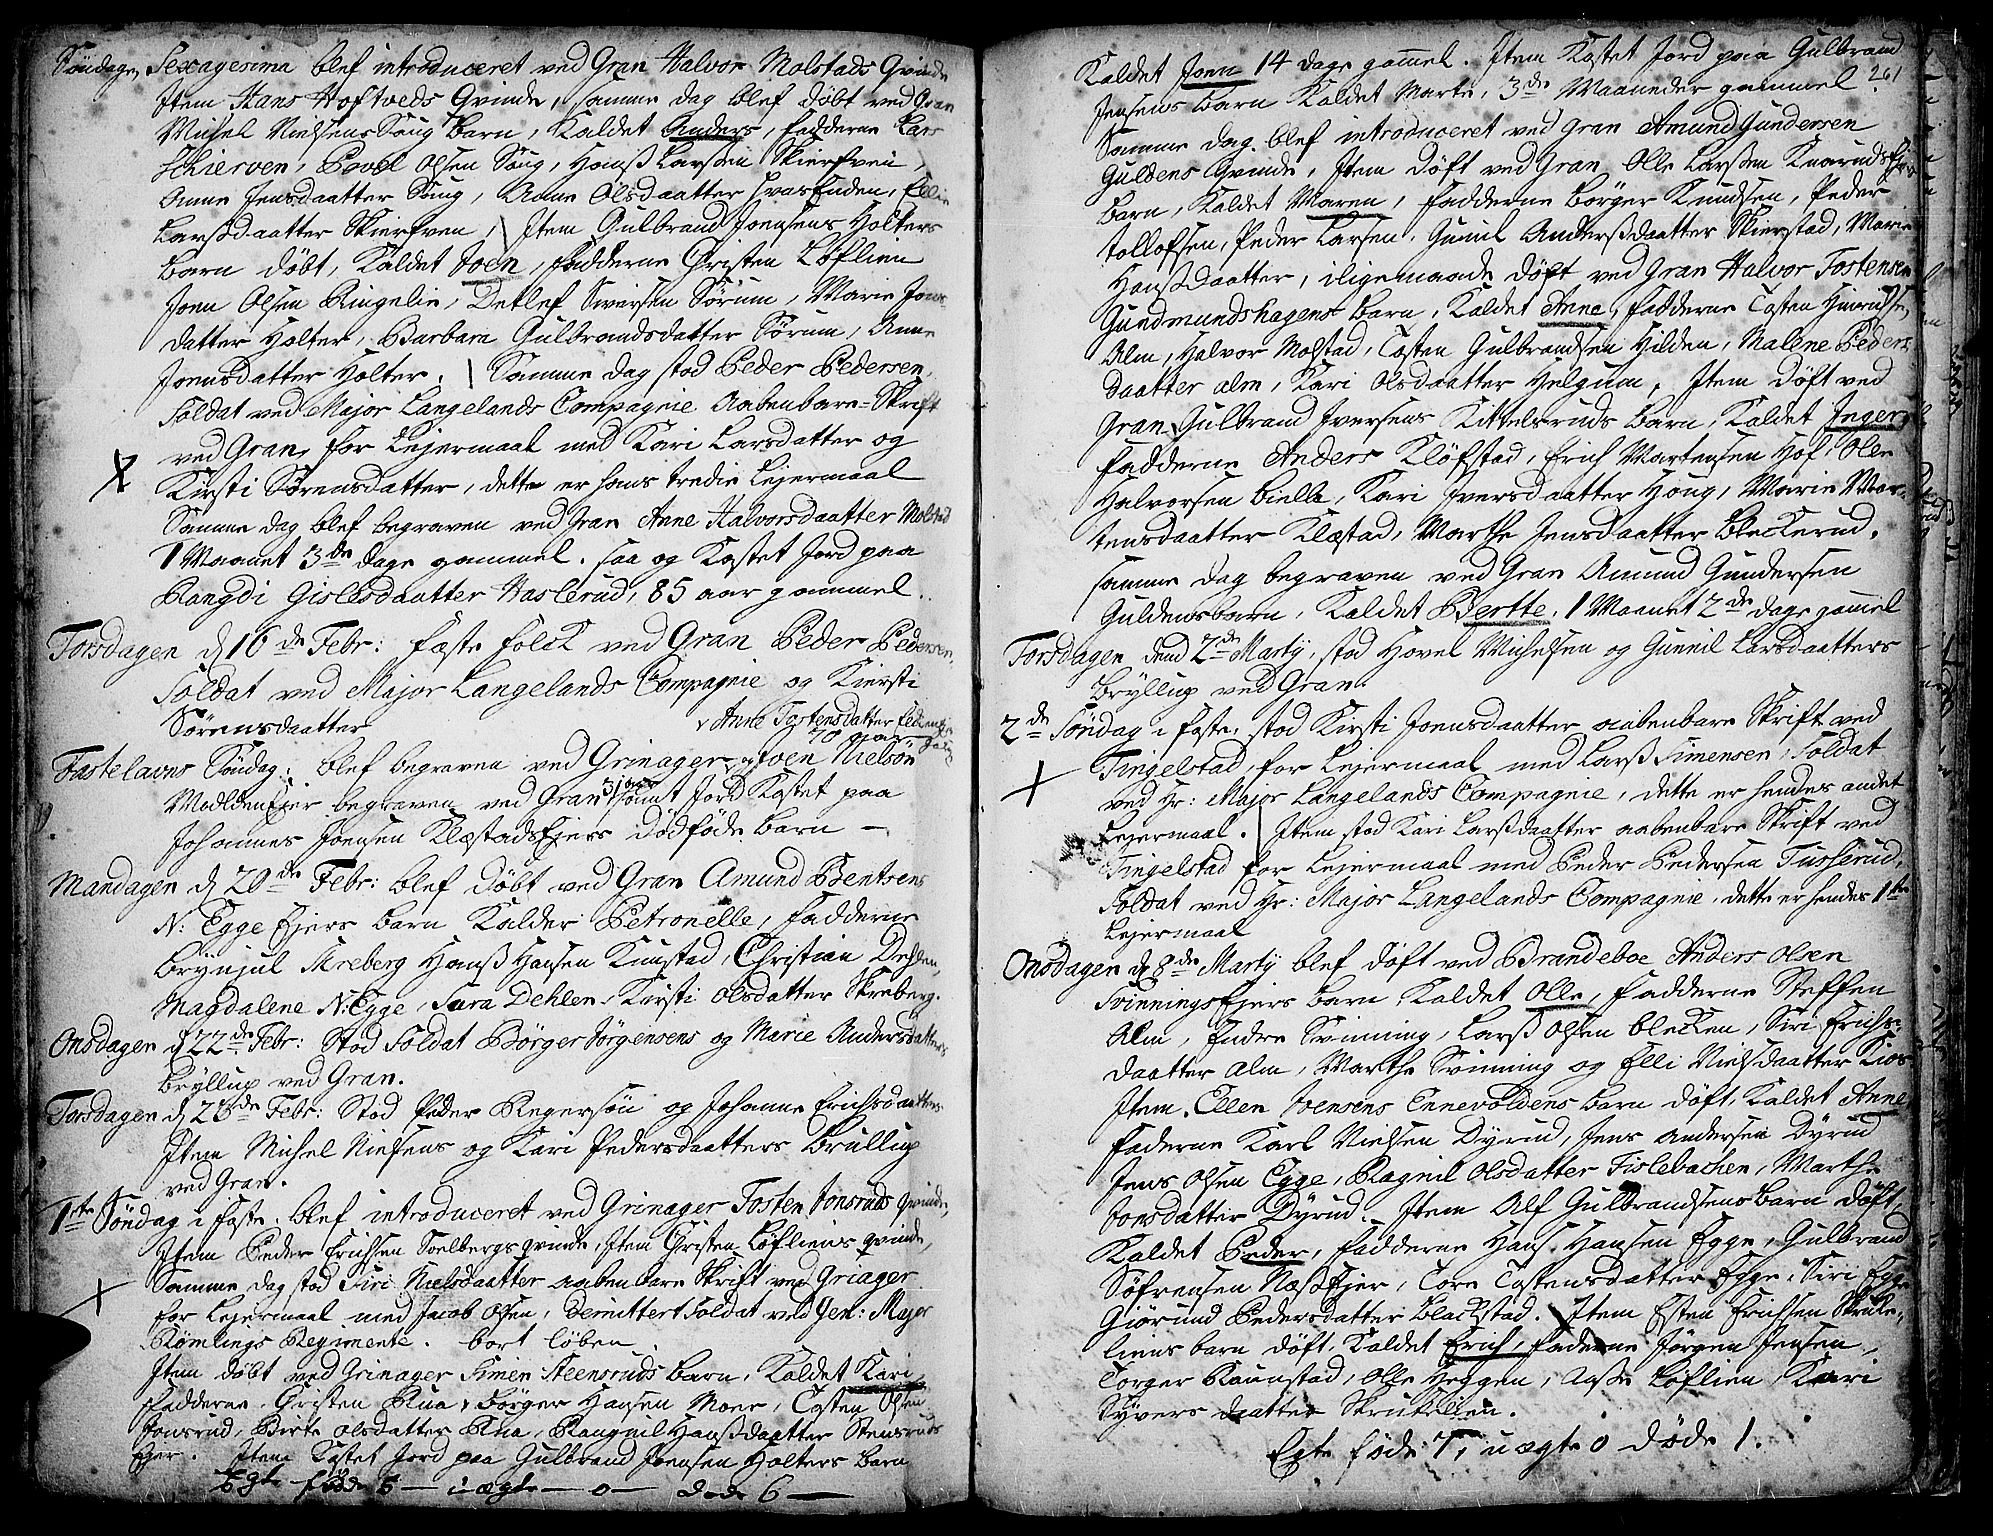 Söndagen Sexagesima blef introduceret ved Gran Halvor Molstads Qvinde
Item Hans Hoftveds Qvinde, samme dag blef döbt ved Gran
Michel Nielsens Haug barn, Kaldet Anders, fadderne Lars
Schierven, Povel Olsen Haug, Hanß Larsen Skierfven,
Anne Jensdaatter Haug, Anne Olsdaatter Hvasenden, Elli
Larsdaatter Skierfven, Item Gulbrand Joensens Holters
barn döbt, Kaldet Joen, fadderne Christen Löflien
Joen Olsen Ringelie, Detlef Sivertsen Sörum, Marie Jons
datter Holter, Barbara Gulbrandsdatter Sörum, Anne
Joensdatter Holter. Samme dag stod Peder Pedersen,
Soldat ved Major Langelands Compagnie Aabenbare-Skrift
ved Gran, for Lejermaal med Kari Larsdatter og
Kirsti Sörensdatter, dette er hans tredie Lejermaal
Samme dag blef begraven ved Gran Anne Halvorsdaatter Molstad
1 Maanet 3de dage gammel. saa og Kastet Jord paa
Rangdi Gislesdaatter Haslerud, 85 aar gammel.
Torsdagen d 16de Febr: fæste folck ved Gran Peder Pedersen
Soldat ved Major Langelands Compagnie og Kiersti
Sörensdaatter
Anne Tostensdatter
70 aar
Fastelavns Söndag: blef begraven ved Grinager Joen Nielsön
Moldenejer begraven ved Gran 31 aar samt Jord Kastet paa
Johannes Joensen Klæstadsejers dödföde barn —
Mandagen d 20de Febr: blef döbt ved Gran Amund Bentsens
N: Egge Ejers barn Kaldet Petronelle, fadderne
Brÿnjul Skreberg Hanß Hansen Knustad, Christian Dehlen,
Magdalene N: Egge, Sara Dehlen, Kirsti Olsdatter Skreberg.
Onsdagen d 22de Febr: Stod Soldat Börger Jörgensens og Marie Andersdatters
Brÿllup ved Gran.
Torsdagen d 23de Febr: Stod Peder Regersön og Johanne Erichsdaatters
Item Michel Nielsens og Kari Pedersdaatters Brüllup
ved Gran.
1ste Söndag i faste, blef introduceret ved Grinager Tosten Jonsruds qvinde,
Item Peder Erichsen Soelbergs qvinde, Item Christen Löfliens qvinde,
Samme dag stod Siri Nielsdaatter aabenbare Skrift ved Griager
for Lejermaal med Jacob Olsen, demittert Soldat ved Gen: Major
Römlings Regimente. bort löben
Item döbt ved Grinager Simen Steensruds barn, Kaldet Kari,
Fadderne Christen Rua, Börger Hansen Moer, Tosten Olsen
Jonsrud, Birte Olsdatter Rua, Rangnil Hanßdaatter Stensruds
Ejer. Item Kastet Jord paa Gulbrand Joensen Holters barn
Egte föde 5 — u ægte — 0 — döde 6 —
261
Kaldet Joen 14 dage gamel. Item Kastet Jord paa Gulbrand
Jensens barn Kaldet Marte, 3de Maaneder gammel.
Samme dag blef introduceret ved Gran Amund Gundersen
Guldens Qvinde, Item döft ved Gran Olle Larsen
barn, Kaldet Maren, fadderne Börger Knudsen, Peder
Tollofsen, Peder Larsen, Gunil Andersdaatter Skierstad, Marie
Hanßdaatter, iligemaade döft ved Gran Halvor Tostensen
Gundmundshagens barn, Kaldet Anne, fadderne Tosten Hinrichsen
Alm, Halvor Molstad, Tosten Gulbrandsen Hilden, Malene Peders
daatter alm, Kari Olsdaatter Helgum, Item döft ved
Gran Gulbrand Iversens Kittelsruds barn, Kaldet Inger,
fadderne Anders Klöfstad, Erich Martensen Hof, Olle
Halvorsen bielle, Kari Iversdaatter Houg, Marie Mar-
tensdaatter Klæstad, Marthe Jensdaatter Bleckerud.
samme dag begraven ved Gran Amund Gundersen
Guldensbarn, Kaldet Berte, 1 Maanet 2de dage gamel
Torsdagen dend 2de Martÿ, stod Hovel Michelsen og Gunnil Larsdaatters
Brÿllup ved Gran.
2de Söndag i faste, stod Kirsti Joensdaatter aabenbare Skrift ved
Tingelstad, for Lejermaal med Larß Simensen, Soldat
ved Hr: Major Langelands Compagnie, dette er hendes andet
Lejermaal. Item stod Kari Larsdaatter aabenbare Skrift ved
Tingelstad for Lejermaal med Peder Pedersen Tusserud,
Soldat ved Hr: Major Langelands Compagnie, dette er hendes 1te
Lejermaal
Onsdagen d 8de Martÿ blef döft ved Brandeboe Anders Olsen
Svinningsejers barn Kaldet Olle, fadderne Steffen
Alm, Endre Svinning, Larß Olsen blecken, Siri Erichs-
daatter alm, Marthe Svinning og Elli Nielsdaatter Kios
Item Ellen Joensens Ennevoldens barn döft, Kaldet Anne
faderne Karl Nielsen Dÿrud, Jens Andersen Dÿrud
Jens Olsen Egge, Ragnil Olsdatter Fislebachen, Marthe
Jonsdatter Dÿrud. Item Alf Gulbrandsens barn döft,
Kaldet Peder, fadderne Hans Hansen Egge, Gulbrand
Söfrensen Næsejer, Tore Tostensdatter Egge, Siri Egge
Giörund Pedersdatter blackstad. Item Esten Erichsen Skrute-
liens barn döft, Kaldet Erich, faderne Jörgen Jensen,
Torger Raunstad, Olle Heggen, Aase Löflien, Kari
Sÿvers daatter Skrutelien.
Egte föde 7, u ægte 0 döde 1.